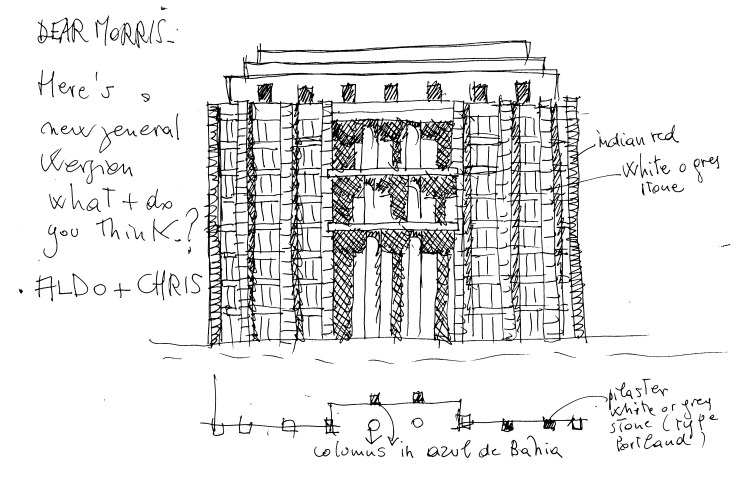 DEAR MORRIS.
Here's a
new general
version
what + do
you think.?
. ALDO + CHRIS
indian red
white o grey
stone
pilaster
white or grey
stone (type
Portland)
columns in azul de Bahia